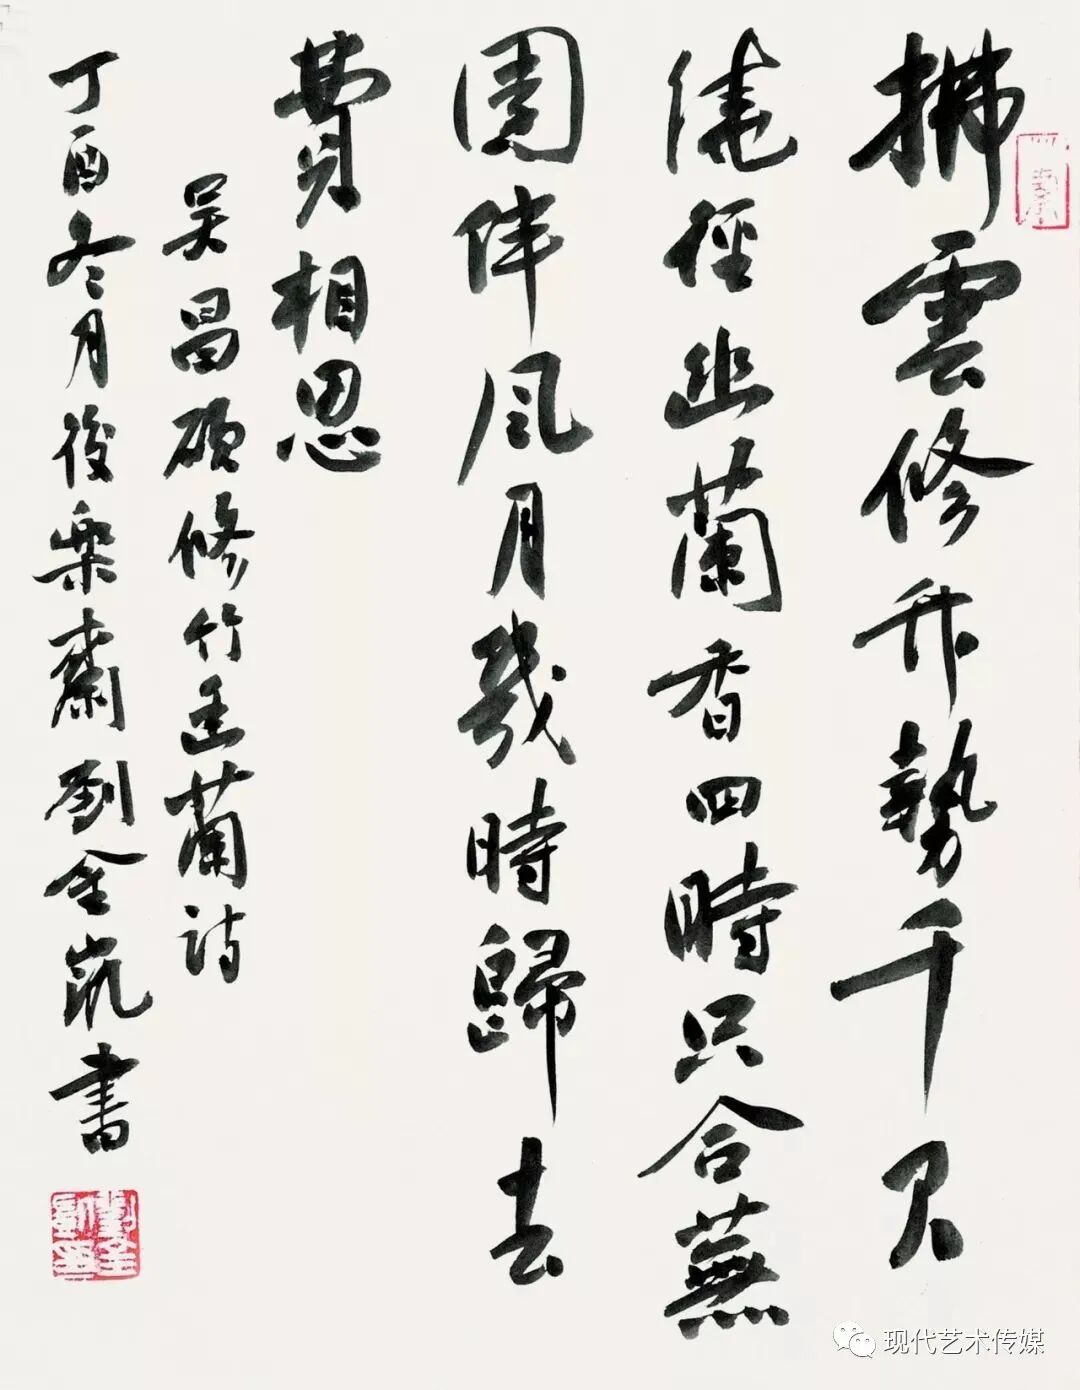 拂雲修竹勢千尺
繞徑幽蘭香四時只合蕪
園伴風月幾時歸去
費相思
吴昌碩修竹幽蘭詩
丁酉冬月後樂齋劉金凱書
现代艺术传媒